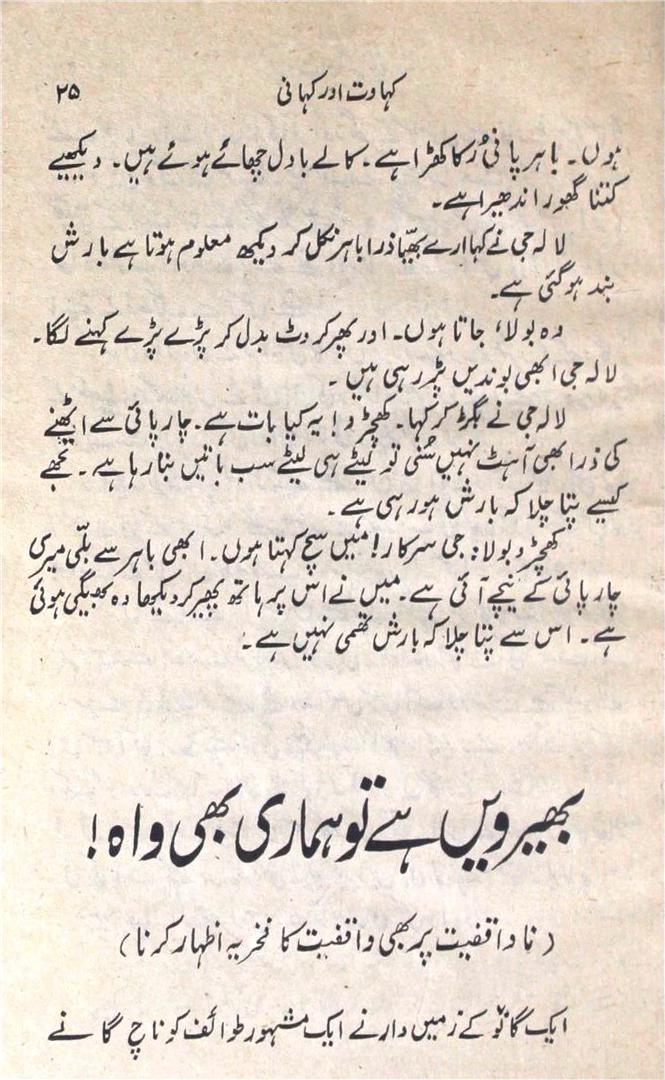 کہاوت اور کہانی ۲۵
ہوں۔ باہر پانی رُکا کھڑا ہے۔ کالے بادل چھائے ہوئے ہیں۔ دیکھیے
کتنا گھور اندھیرا ہے۔
لالہ جی نے کہا ارے بھیّا ذرا باہر نکل کر دیکھ معلوم ہوتا ہے بارش
بند ہوگئی ہے۔
وہ بولا، جاتا ہوں۔ اور پھر کروٹ بدل کر پڑے پڑے کہنے لگا۔
لالہ جی ابھی بوندیں پڑ رہی ہیں۔
لالہ جی نے بگڑ کر کہا۔ کھچڑو! یہ کیا بات ہے۔ چارپائی سے اٹھنے
کی ذرا بھی آہٹ نہیں سُنی تو لیٹے ہی لیٹے سب باتیں بنا رہا ہے۔ تجھے
کیسے پتا چلا کہ بارش ہو رہی ہے۔
کھچڑو بولا: جی سرکار! میں سچ کہتا ہوں۔ ابھی باہر سے بلّی میری
چارپائی کے نیچے آئی ہے۔ میں نے اس پر ہاتھ پھیر کر دیکھا وہ بھیگی ہوئی
ہے۔ اس سے پتا چلا کہ بارش تھمی نہیں ہے۔
بھیرویں ہے تو ہماری بھی واہ!
(ناواقفیت پر بھی واقفیت کا فخریہ اظہار کرنا)
ایک گانوٗ کے زمیں دار نے ایک مشہور طوائف کو ناچ گانے